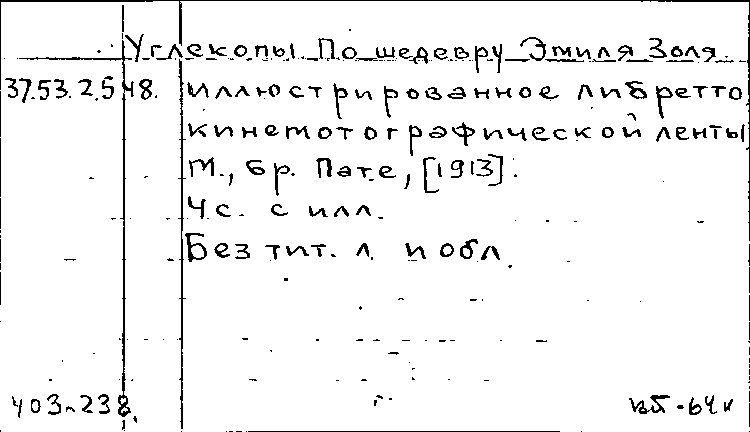 Углекопы По шедевру Эмиля Золя.
37.53.2.548. иллюстрированное либретто
кинемотографической ленты
М., бр. Пате, [1913].
4 с. с илл.
Без тит. л. и обл.
403-238.